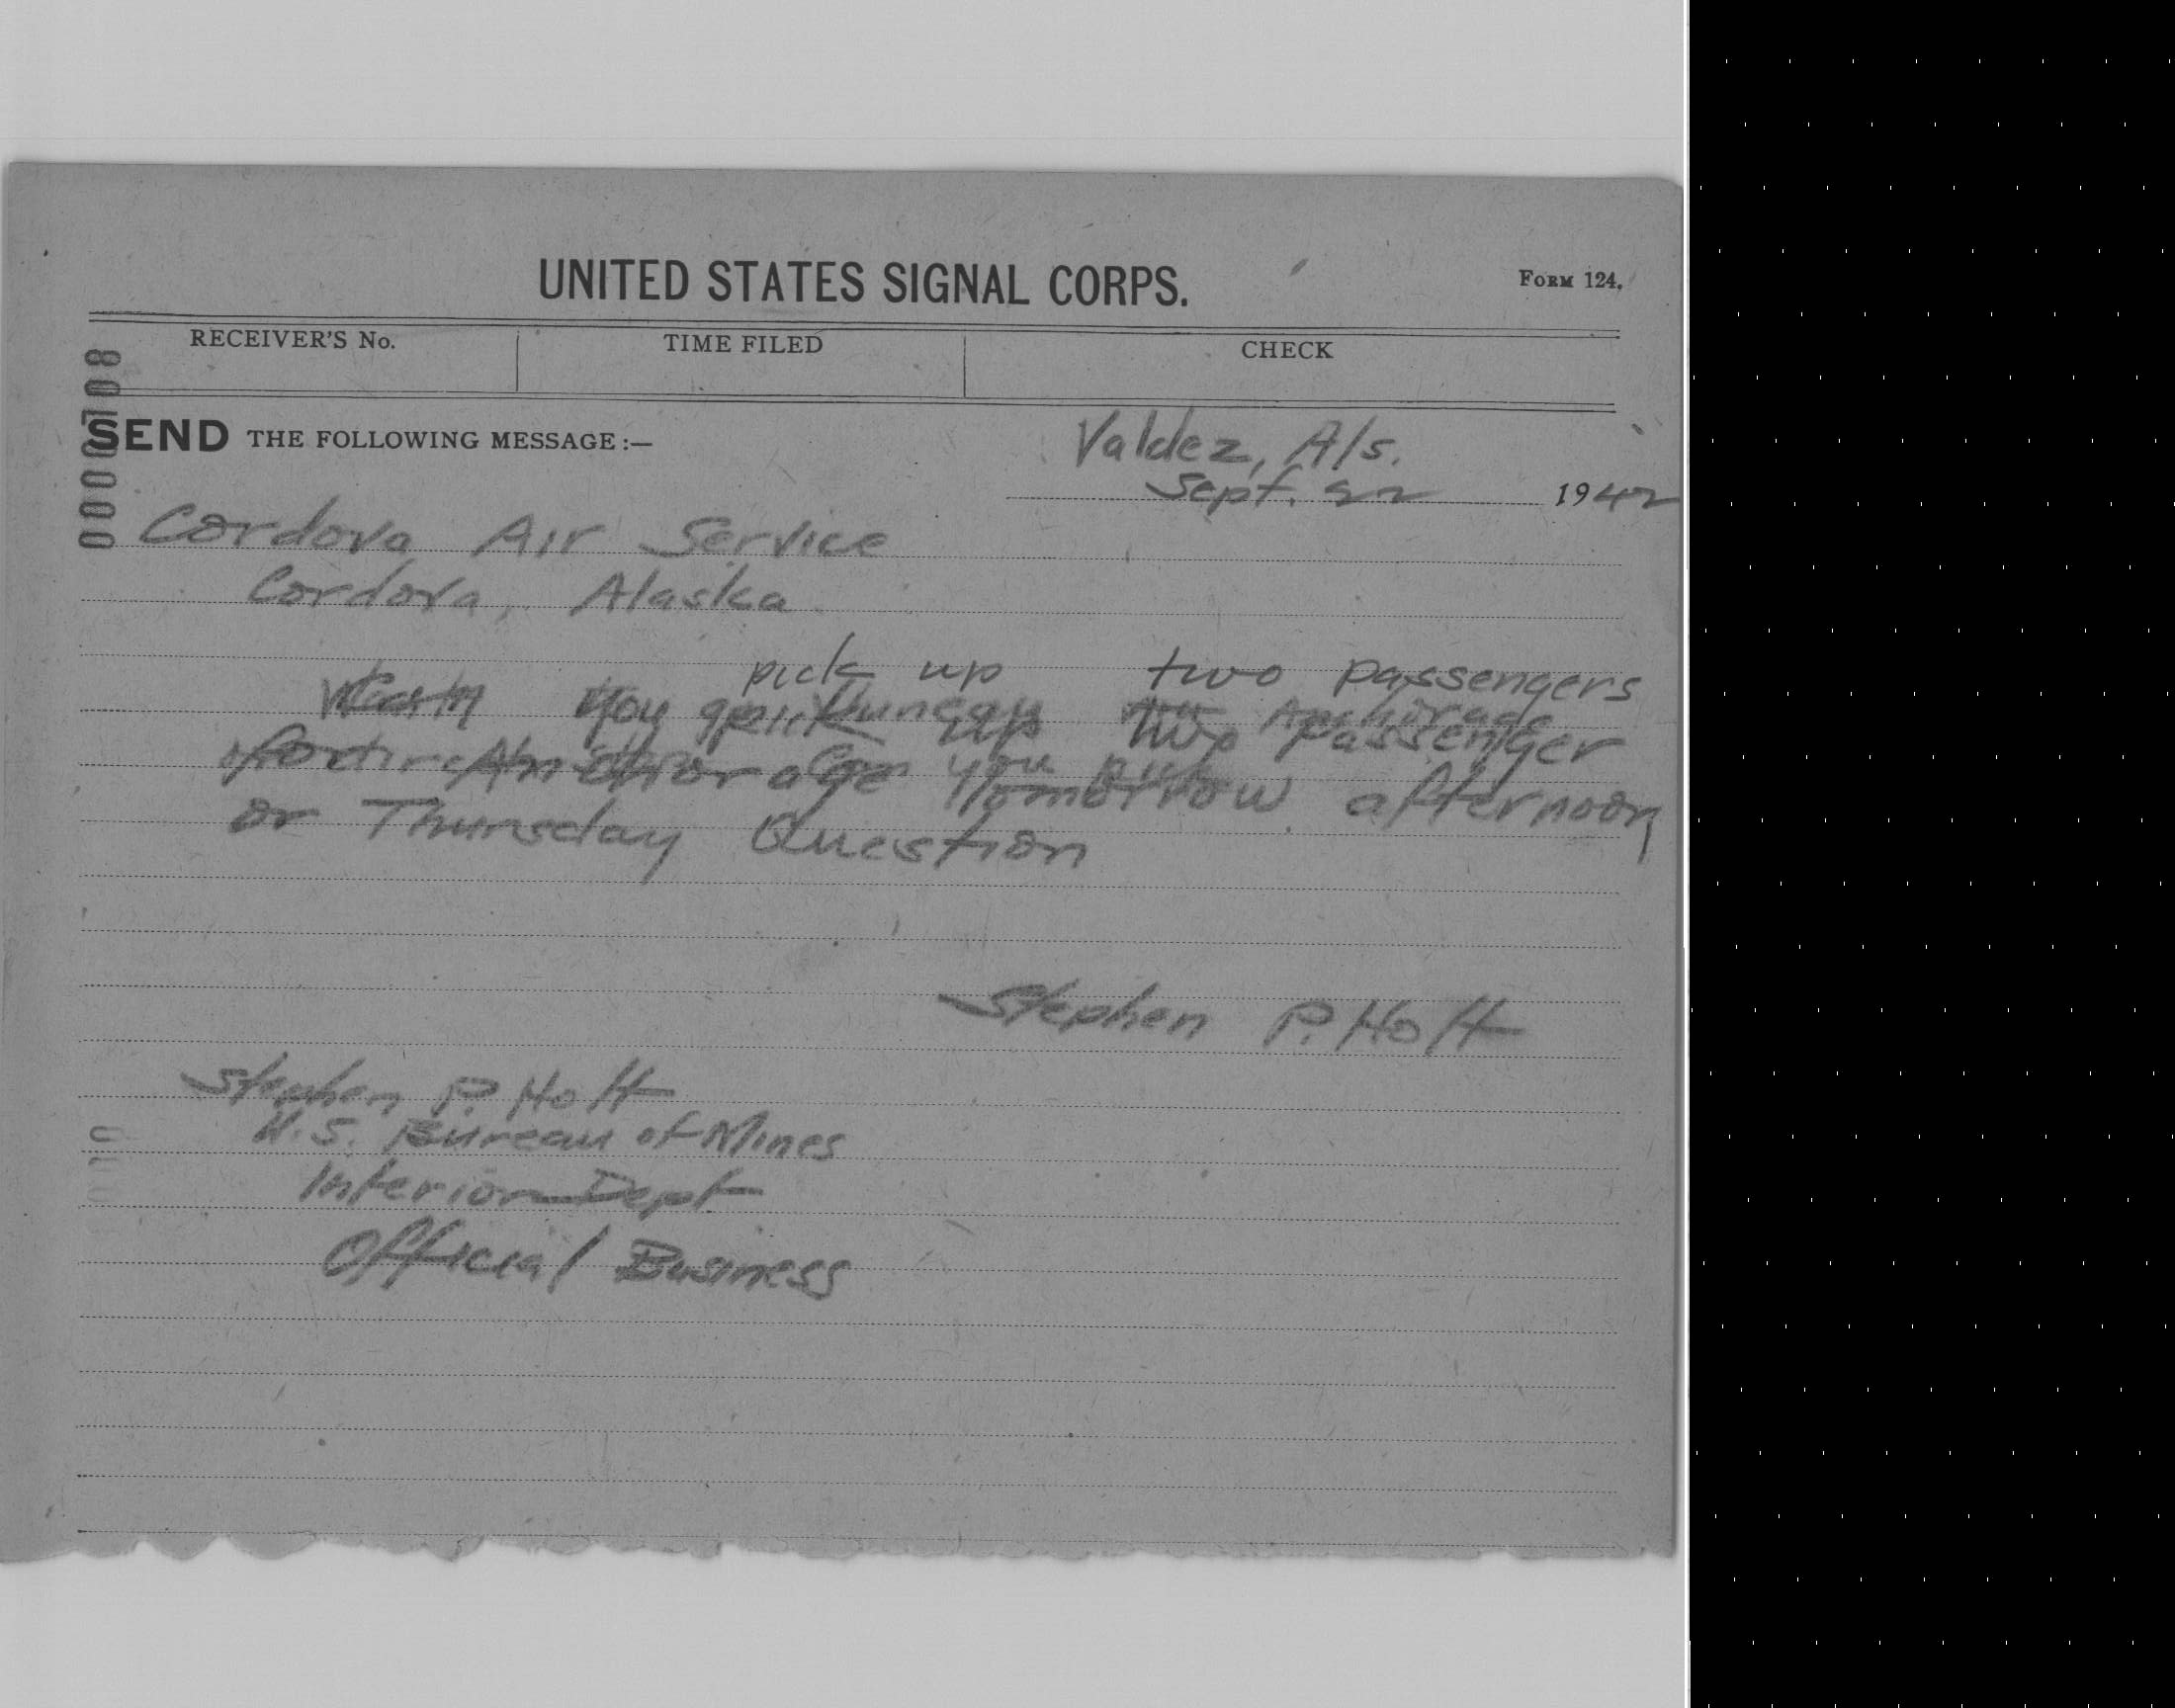 UNITED STATES SIGNAL CORPS.
FORM 124.
RECEIVER'S No. TIME FILED CHECK
SEND THE FOLLOWING MESSAGE:—
Valdez, Als.
Sept. 22 1942
Cordova Air Service
Cordova, Alaska
pick up two passengers
you up two passenger
for Anchorage Tomorrow afternoon
or Thursday Question
Stephen P. Holt
Stephen P. Holt
U.S. Bureau of Mines
Interior Dept
Official Business